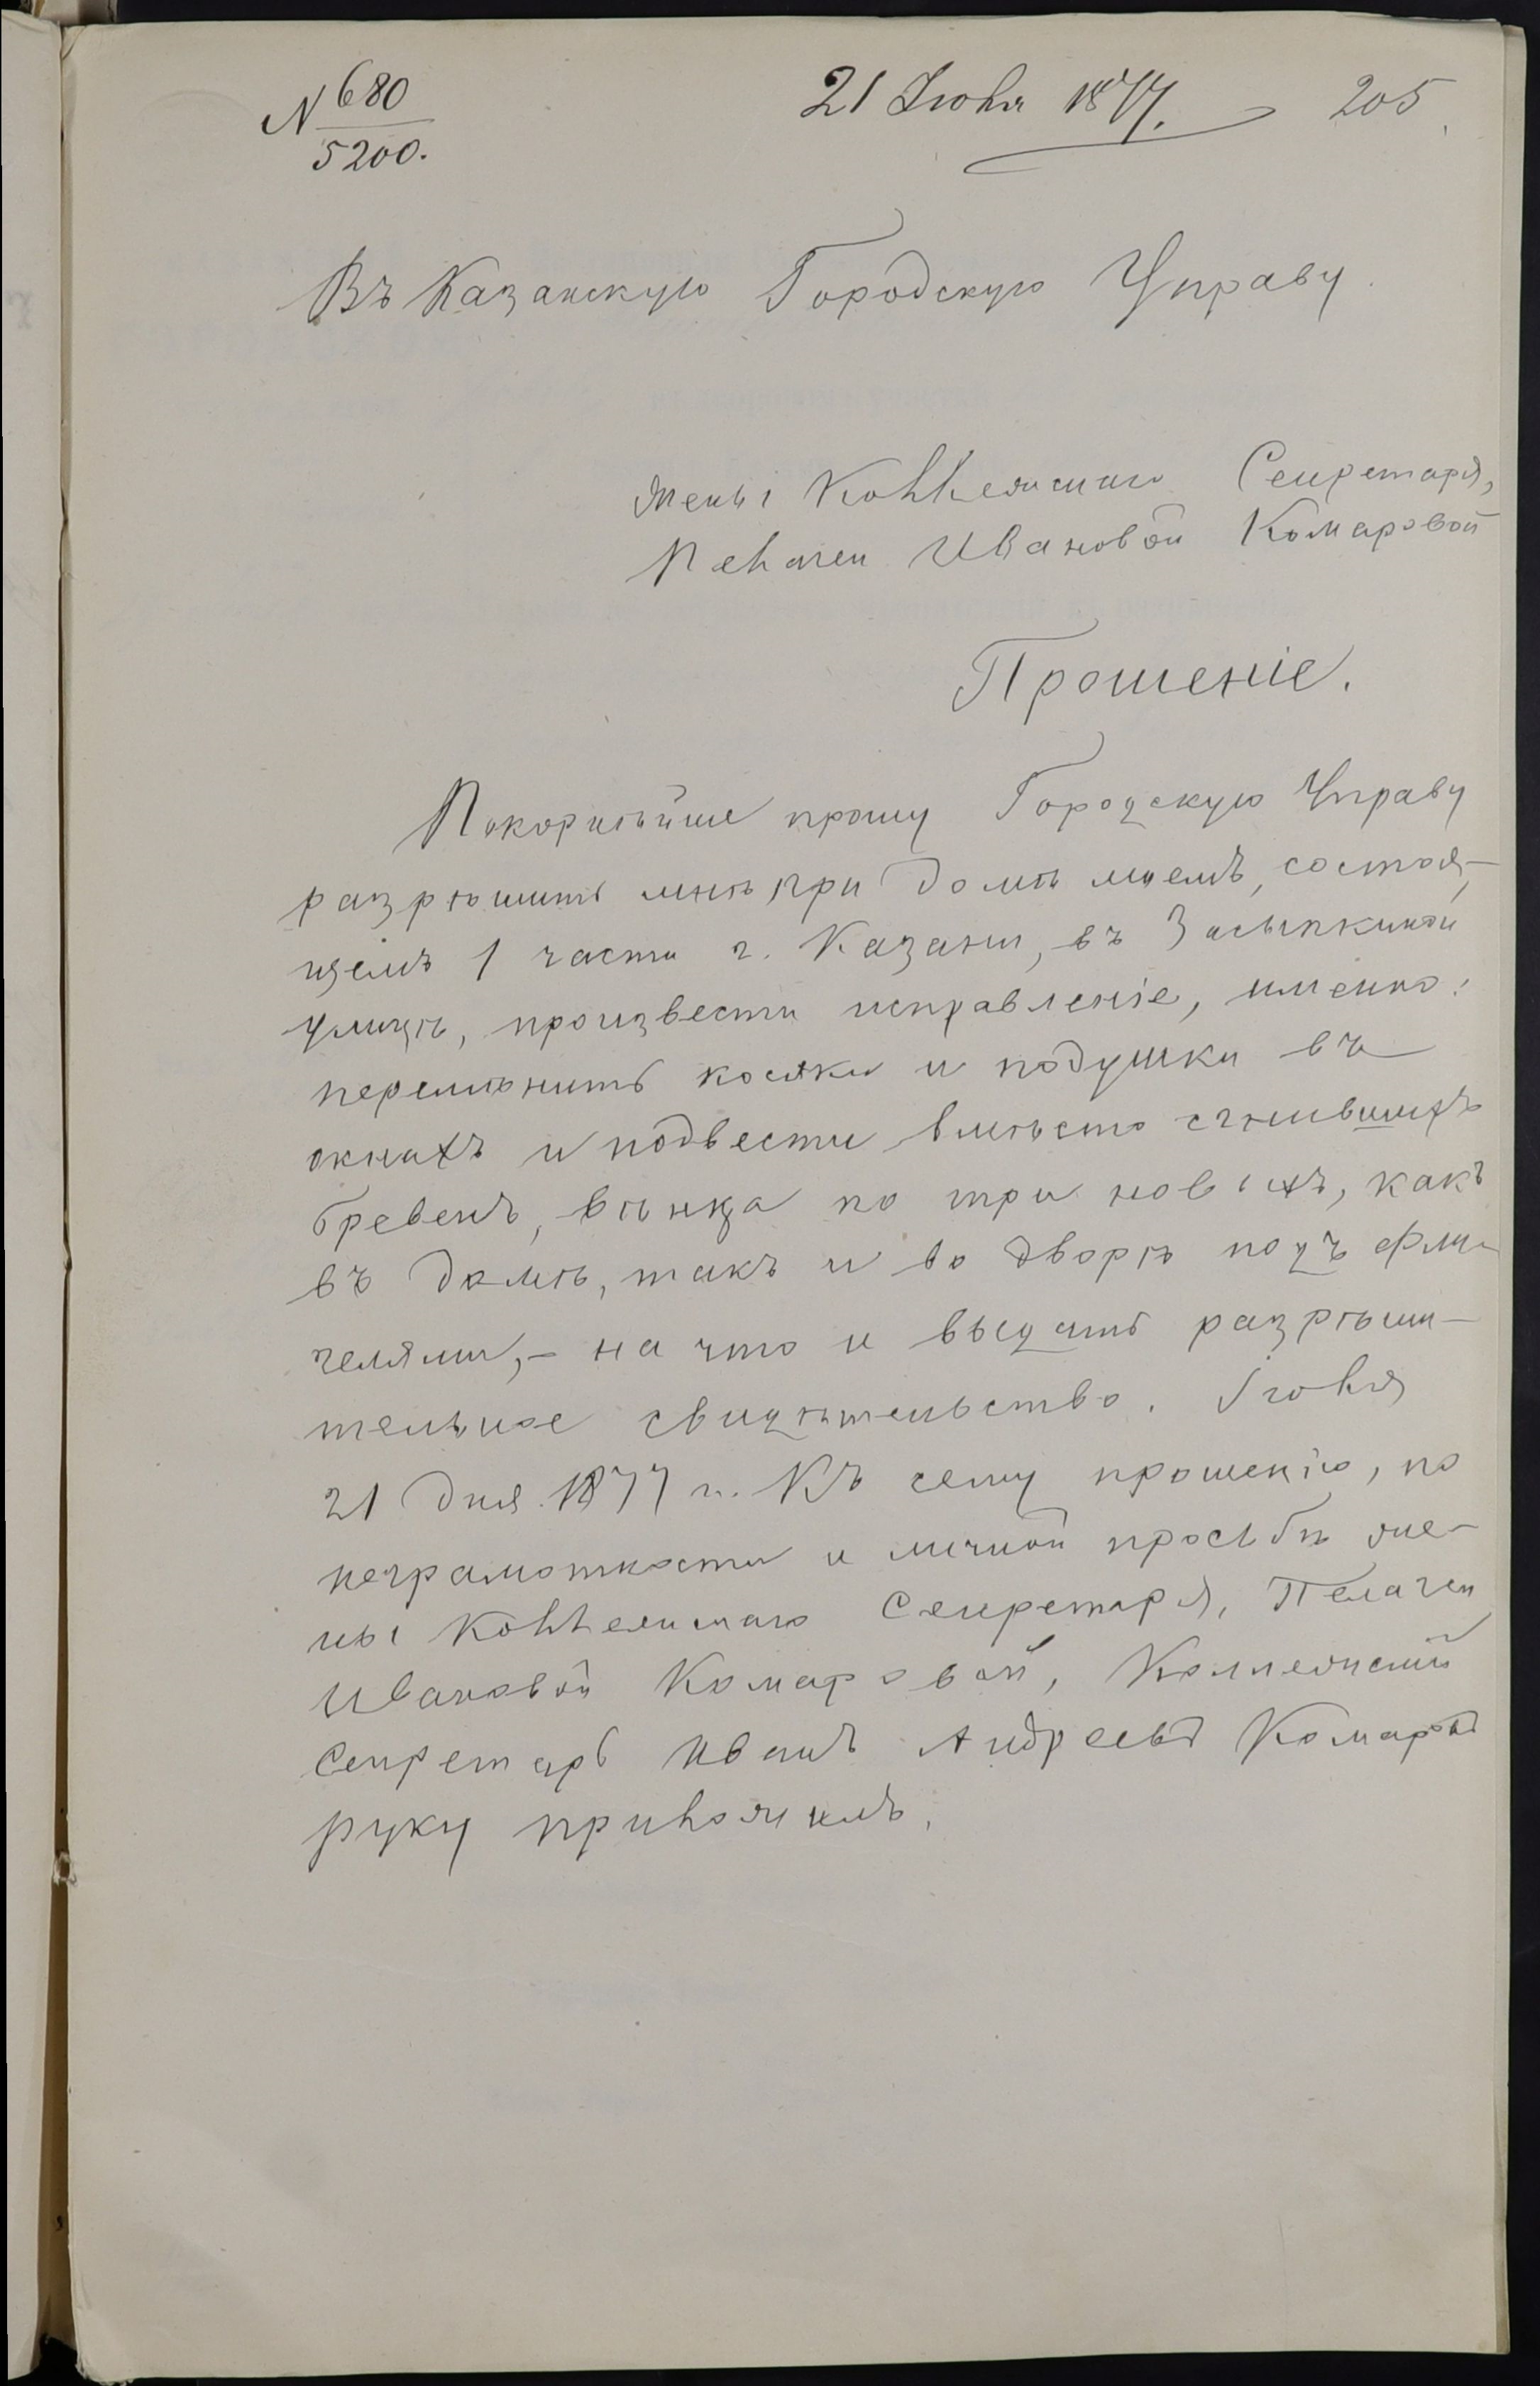 N 680
5200.
21 Іюля 1877. 205
Въ Казанскую Городскую Управу.
жены Коллежскаго Секретаря,
Пелагеи Ивановой Комаровой
Прошеніе.
Покорнѣйше прошу Городскую Управу
разрѣшить мнѣ при домѣ моемъ, состоя-
щемъ 1 части г. Казани, въ Засыпкиной
улицѣ, произвести исправленіе, именно:
перемѣнить косяки и подушки въ
окнахъ и подвести вмѣсто сгнившихъ
бревенъ, вѣнца по три новыхъ, какъ
въ домѣ, такъ и во дворѣ подъ фли-
гелями, - на что и выдать разрѣши-
тельное свидѣтельство. Іюля
21 дня 1877 г. Къ сему прошенію, по
неграмотности и личной просьбѣ же-
ны Коллежскаго Секретаря, Пелагеи
Ивановой Комаровой, Коллежскій
Секретарь Иванъ Андреевъ Комаровъ
руку приложилъ.